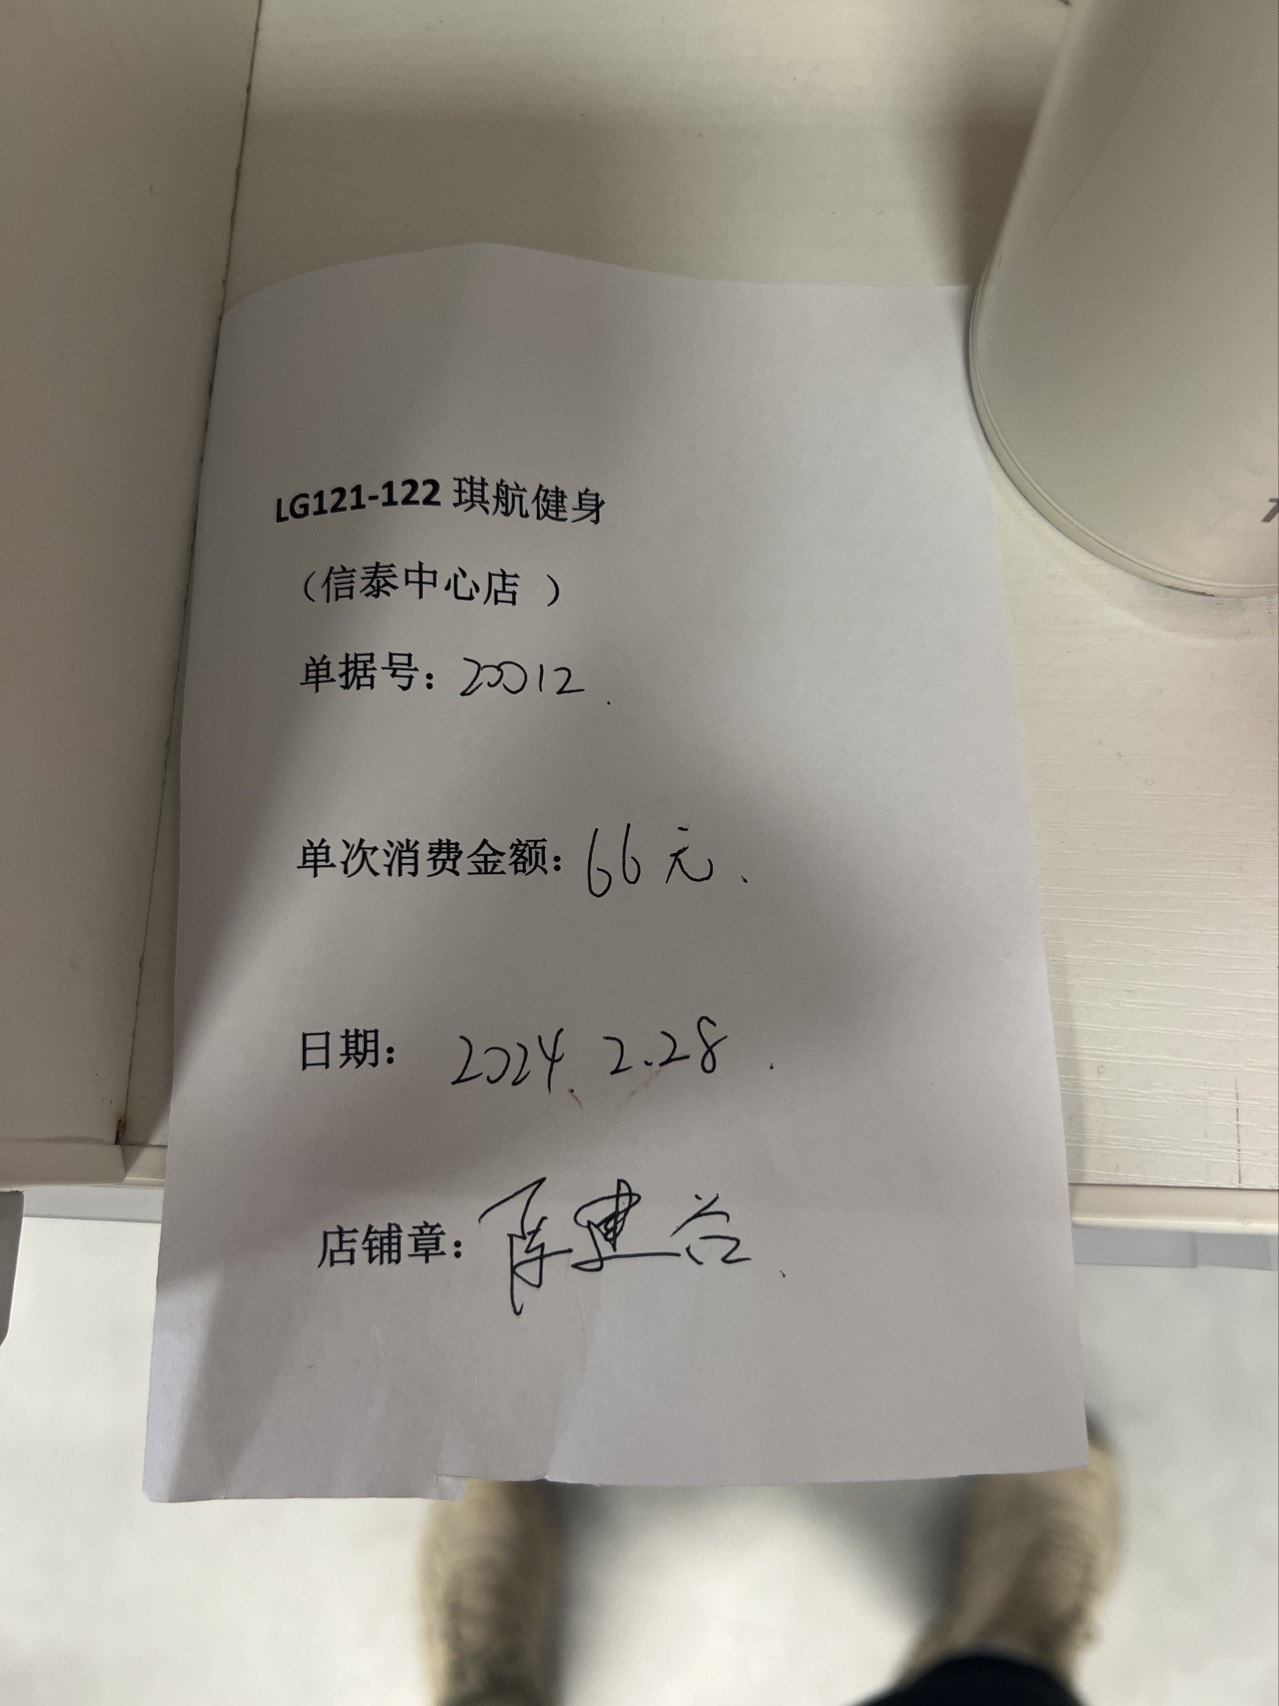 LG121-122 琪航健身
（信泰中心店 ）
单据号：20012.
单次消费金额：66元.
日期： 2024.2.28.
店铺章：陈建谷.